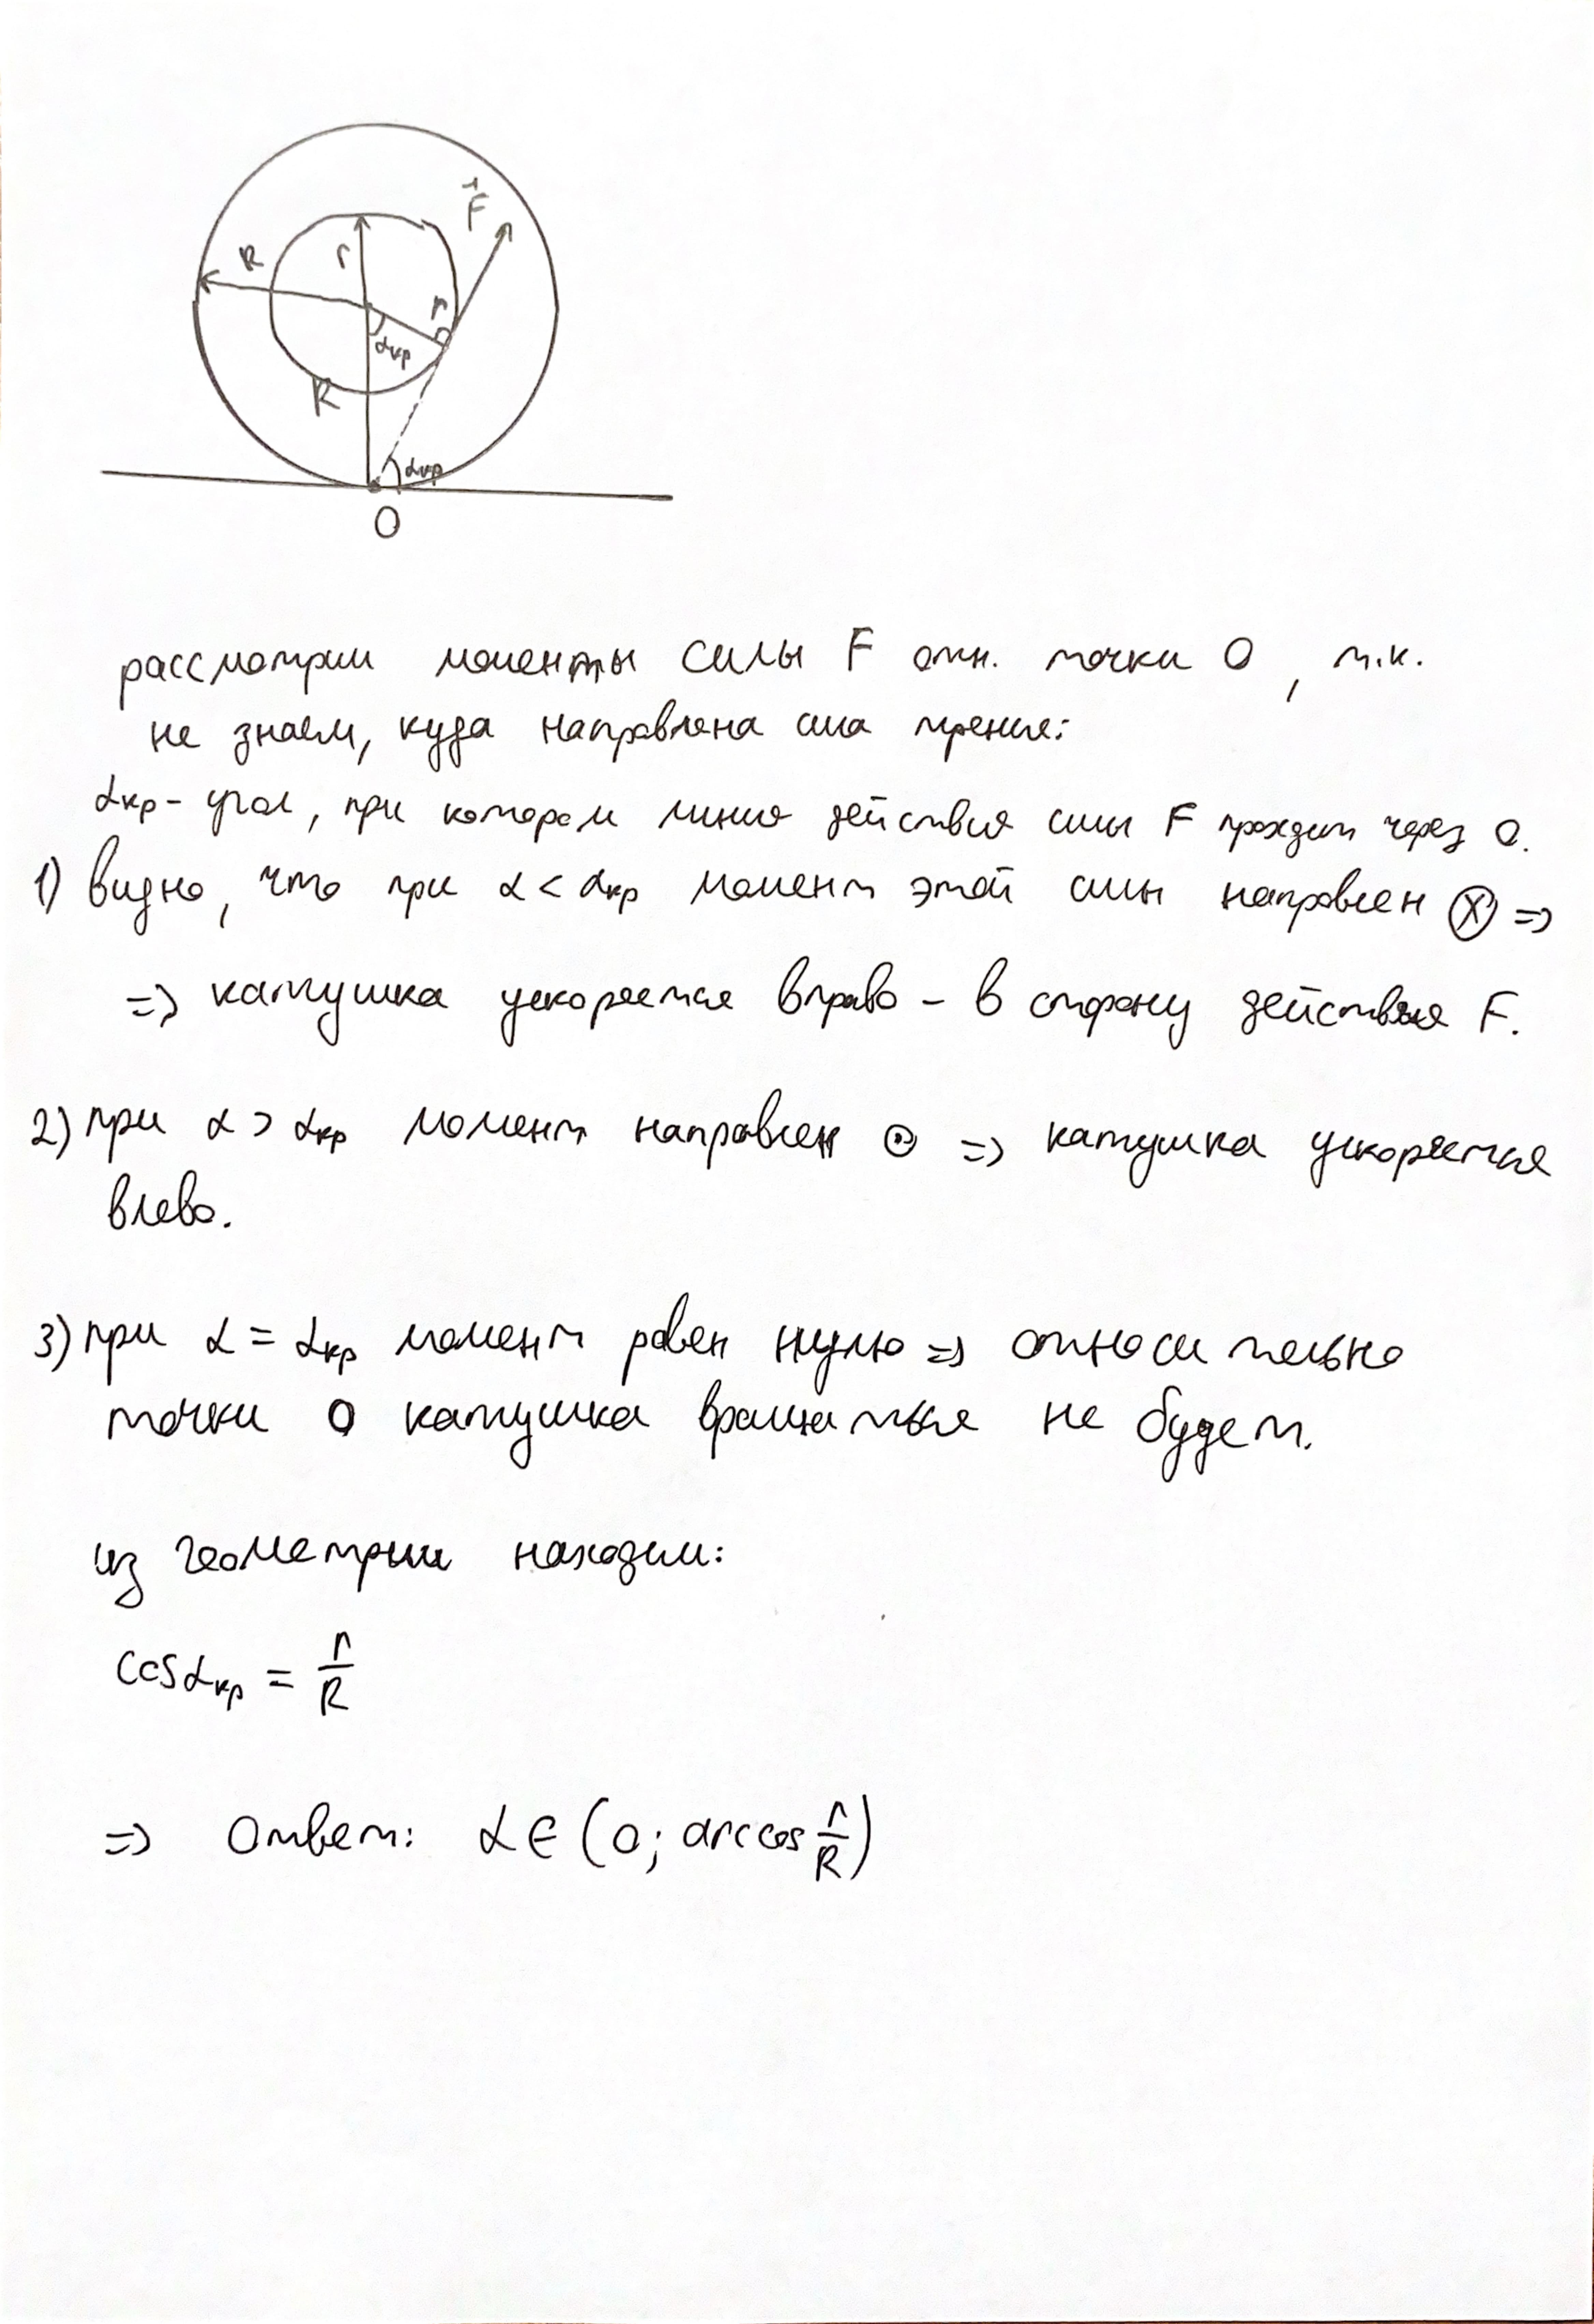 F
R
r
r
αкр
R
αкр
O
рассмотрим моменты силы F отн. точки O, т.к.
не знаем, куда направлена сила трения:
αкр - угол, при котором линия действия силы F проходит через O.
1) видно, что при α < αкр момент этой силы направлен ⊗ =>
=> катушка ускоряется вправо - в сторону действия F.
2) при α > αкр момент направлен ⊙ => катушка ускоряется
влево.
3) при α = αкр момент равен нулю => относительно
точки O катушка вращаться не будет.
из геометрии находим:
cosαкр = r/R
=> Ответ: α ∈ (0; arccos r/R)